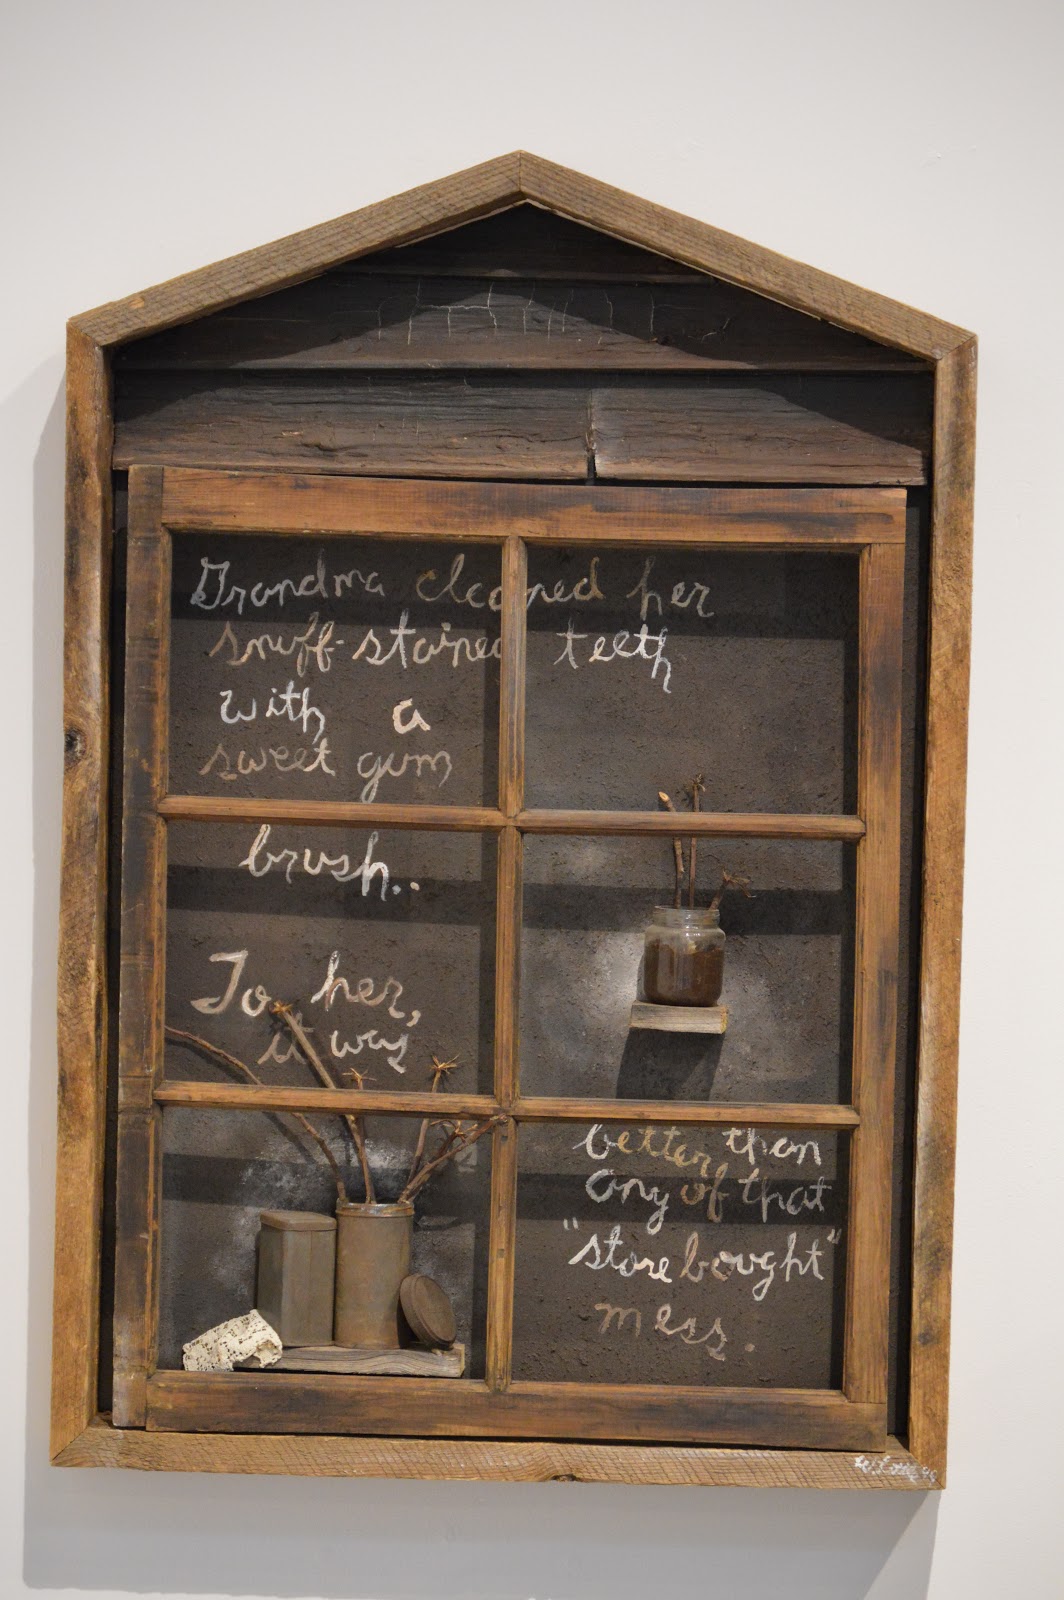 Grandma cleaned her
snuff-stained teeth
with a
sweet gum
brush..
To her,
it was
better than
any of that
"store bought"
mess.